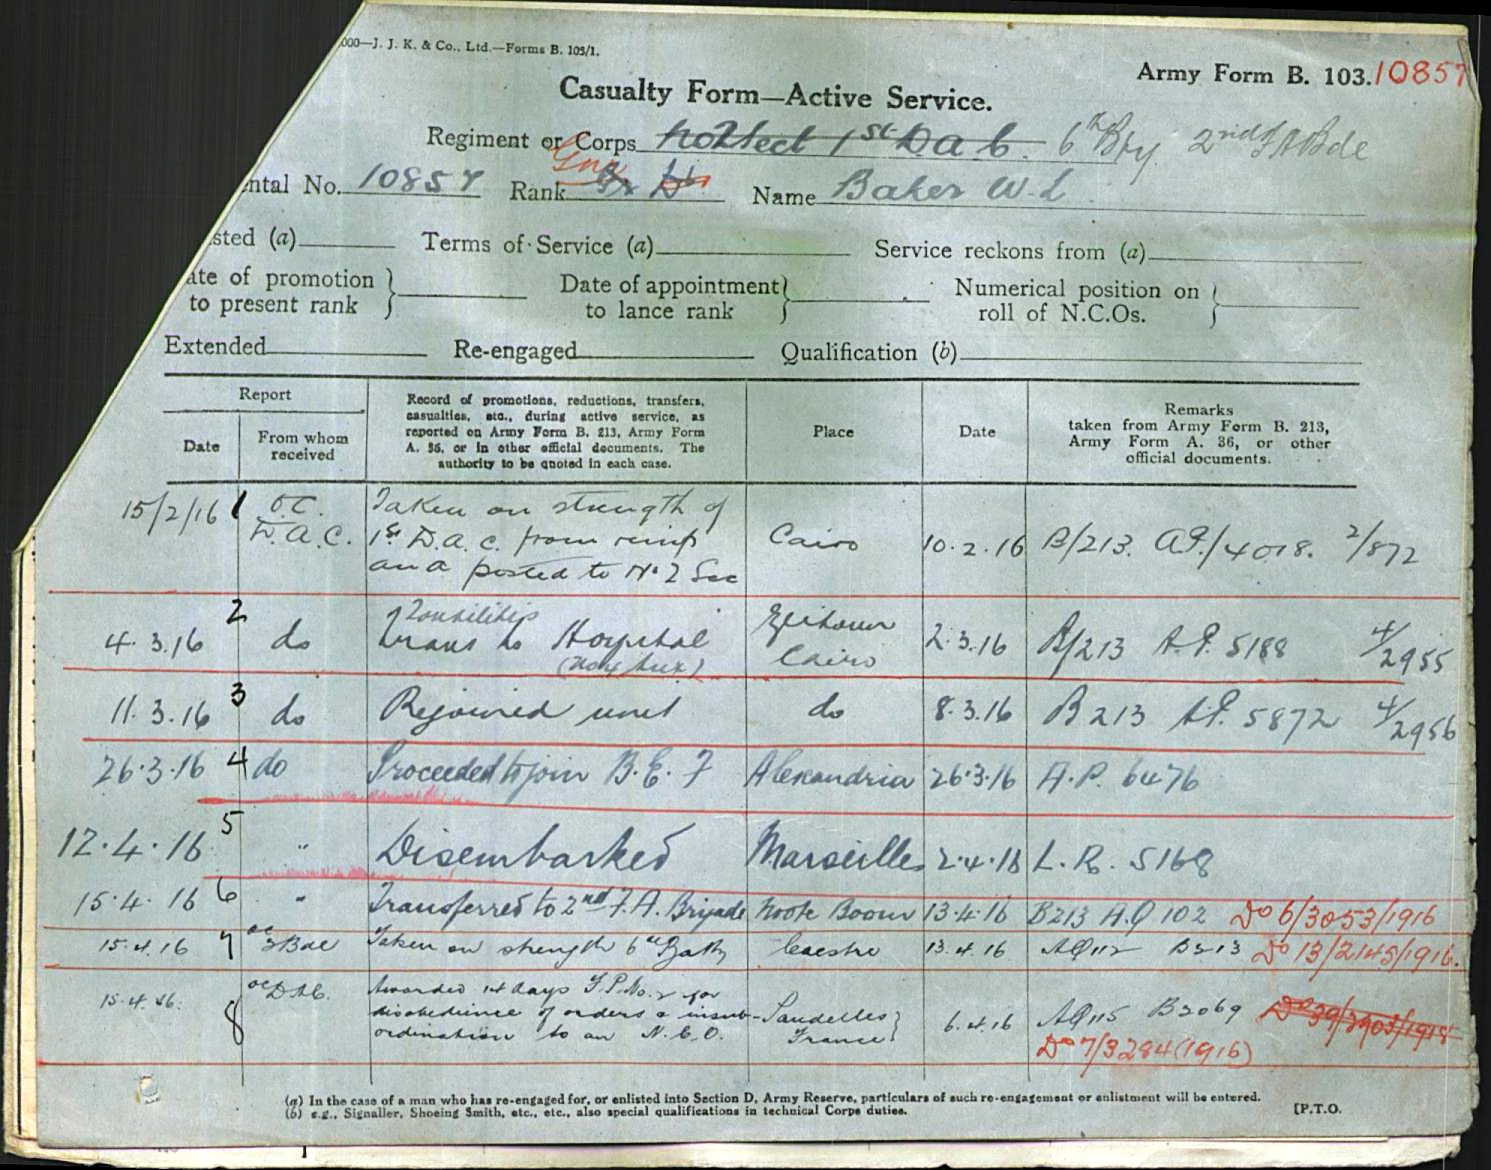 000—J. J. K. & Co., Ltd.—Forms B. 103/1.
Army Form B. 103. 10857
Casualty Form—Active Service.
Regiment or Corps No 2 Sect 1st D.A.C. 6th Bty 2nd F A Bde
ental No. 10857 Rank Gnr Gr Dr Name Baker W. L
sted (a) Terms of Service (a) Service reckons from (a)
ate of promotion to present rank } Date of appointment to lance rank } Numerical position on roll of N.C.Os. }
Extended Re-engaged Qualification (b)
Report
Date
From whom received
Record of promotions, reductions, transfers, casualties, etc., during active service, as reported on Army Form B. 213, Army Form A. 36, or in other official documents. The authority to be quoted in each case.
Place
Date
Remarks
taken from Army Form B. 213, Army Form A. 36, or other official documents.
15/2/16 1 O.C. D.A.C. Taken on strength of 1st D.A.C. from reinfs and posted to No 2 Sec Cairo 10.2.16 B/213. AP/4018. 2/872
4.3.16 2 do Tonsilitis Trans to Hospital (No 4 Aux) Zeitoun Cairo 2.3.16 B/213 A.P. 5188 4/2955
11.3.16 3 do Rejoined unit do 8.3.16 B 213 A.P. 5872 4/2956
26.3.16 4 do Proceeded to join B.E.F Alexandria 26.3.16 A.P. 6476
12.4.16 5 " Disembarked Marseilles 2.4.16 L.R. 5168
15.4.16 6 " Transferred to 2nd F.A. Brigade Noote Boom 13.4.16 B213 A.Q 102 Do 6/3053/1916
15.4.16 7 oc Bde Taken on strength 6th Batty Caestre 13.4.16 AQ112 B213 Do 13/2145/1916.
15.4.16. 8 oc DAC. Awarded 14 days F.P. No. 2 for disobedience of orders & insubordination to an N.C.O. France } 6.4.16 AQ115 B2069 Do 39/3903/1915
Do 7/3284(1916)
(a) In the case of a man who has re-engaged for, or enlisted into Section D, Army Reserve, particulars of such re-engagement or enlistment will be entered.
(b) e.g., Signaller, Shoeing Smith, etc., etc., also special qualifications in technical Corps duties.
[P.T.O.